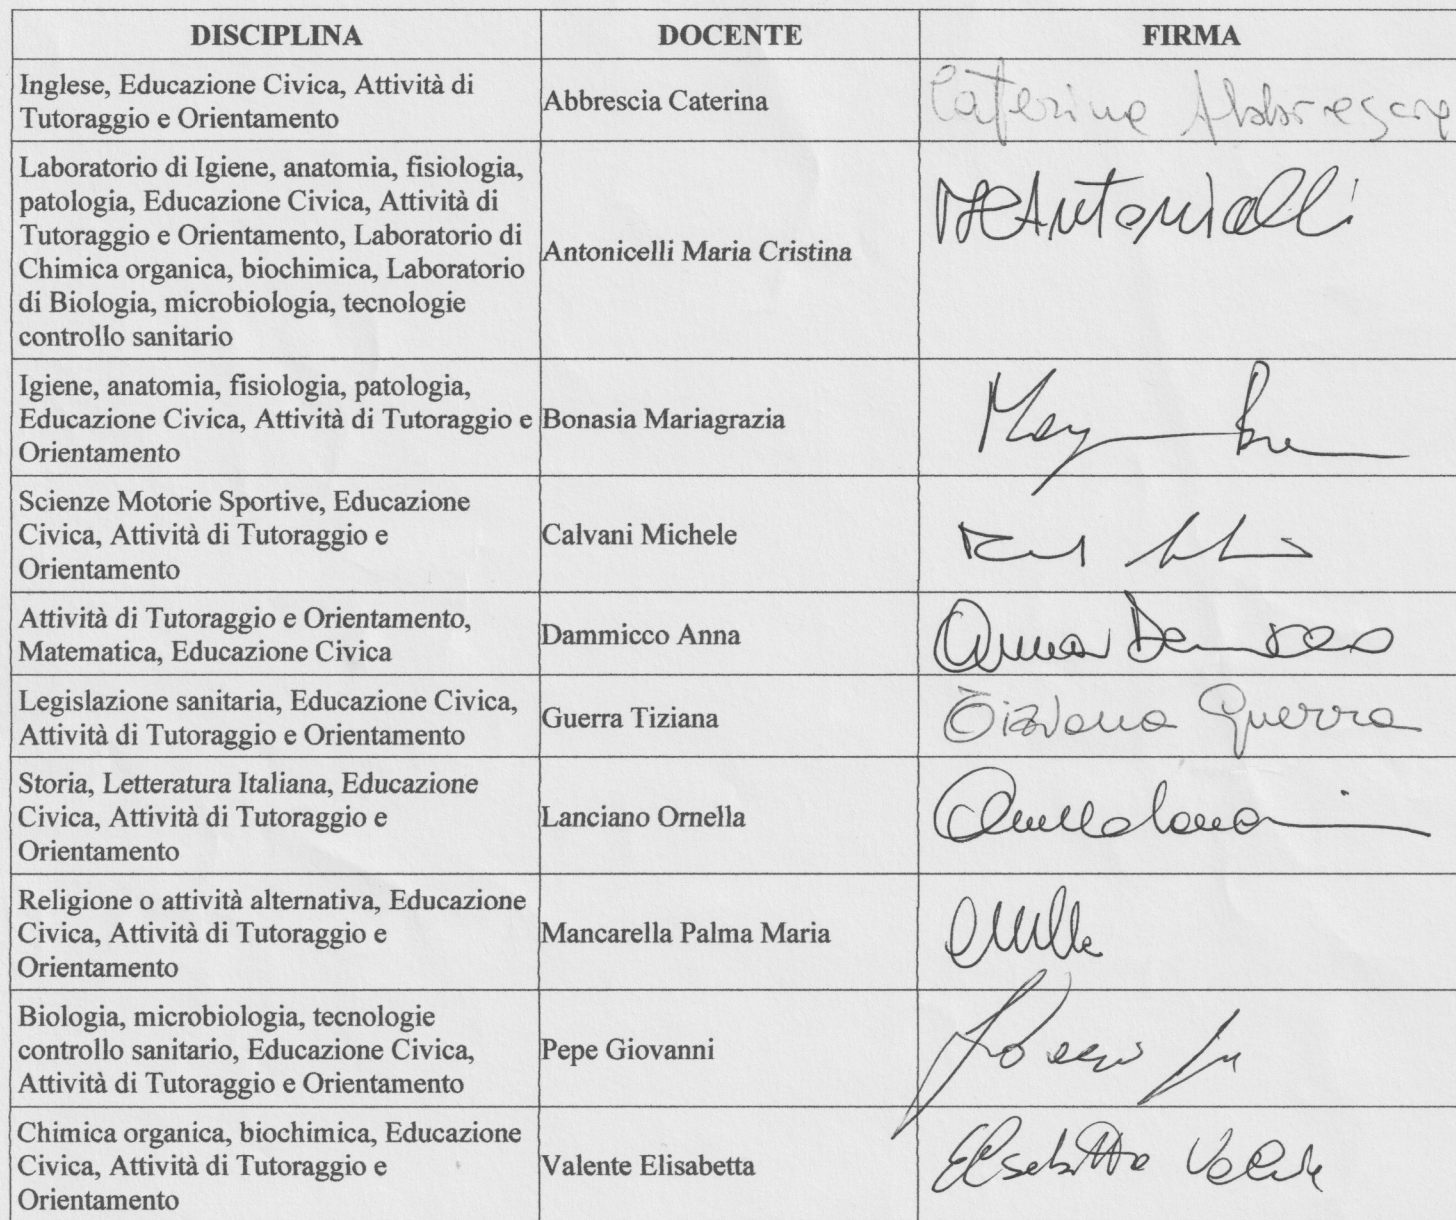 DISCIPLINA DOCENTE FIRMA
Inglese, Educazione Civica, Attività di
Tutoraggio e Orientamento
Abbrescia Caterina
Caterina Abbrescia
Laboratorio di Igiene, anatomia, fisiologia,
patologia, Educazione Civica, Attività di
Tutoraggio e Orientamento, Laboratorio di
Chimica organica, biochimica, Laboratorio
di Biologia, microbiologia, tecnologie
controllo sanitario
Antonicelli Maria Cristina
MCAntonicelli
Igiene, anatomia, fisiologia, patologia,
Educazione Civica, Attività di Tutoraggio e
Orientamento
Bonasia Mariagrazia
Scienze Motorie Sportive, Educazione
Civica, Attività di Tutoraggio e
Orientamento
Calvani Michele
Attività di Tutoraggio e Orientamento,
Matematica, Educazione Civica
Dammicco Anna
Anna Dammicco
Legislazione sanitaria, Educazione Civica,
Attività di Tutoraggio e Orientamento
Guerra Tiziana
Tiziana Guerra
Storia, Letteratura Italiana, Educazione
Civica, Attività di Tutoraggio e
Orientamento
Lanciano Ornella
Ornella Lanciano
Religione o attività alternativa, Educazione
Civica, Attività di Tutoraggio e
Orientamento
Mancarella Palma Maria
Biologia, microbiologia, tecnologie
controllo sanitario, Educazione Civica,
Attività di Tutoraggio e Orientamento
Pepe Giovanni
Chimica organica, biochimica, Educazione
Civica, Attività di Tutoraggio e
Orientamento
Valente Elisabetta
Elisabetta Valente